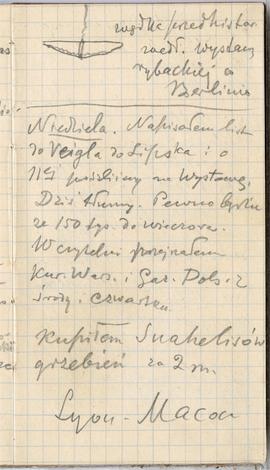 wędka przedhistor.
wedł. wystawy
rybackiej w
Berlinie
Niedziela. Napisałem list
do Veigla do Lipska i o
11½ poszliśmy na wystawę.
Dziś tłumy. Pewno było
ze 150 tys. do wieczora.
W czytelni przejrzałem
Kur. Warsz. i Gaz. Pols. z
środy i czwartku.
Kupiłem Suahelisów
grzebień za 2 m.
Lyon - Macon